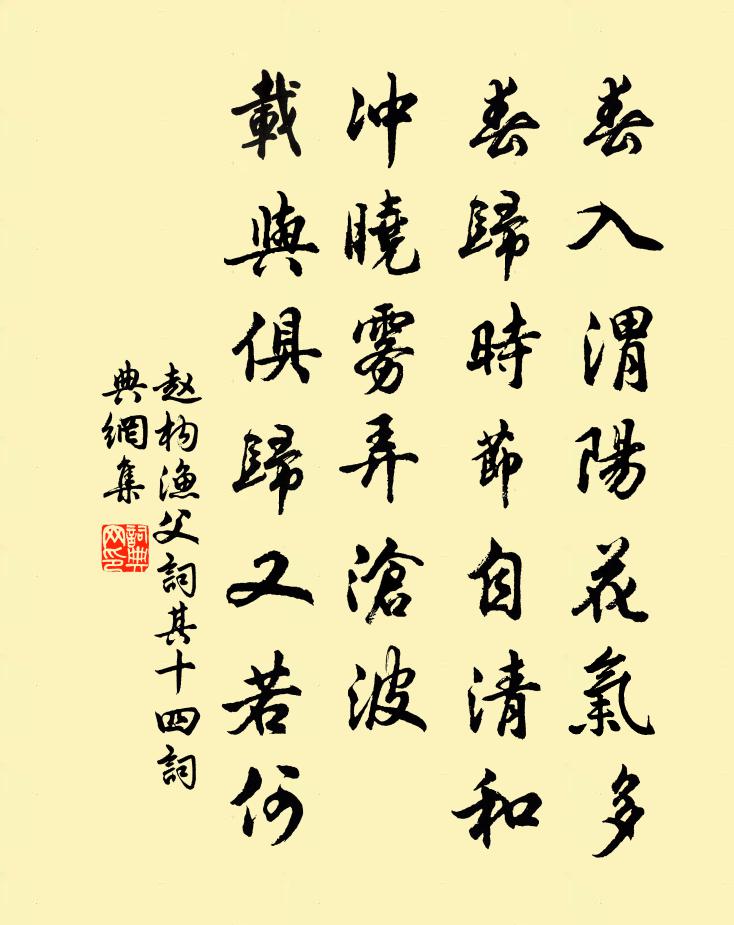 春入渭陽花氣多
春歸時節自清和
沖曉雾弄滄波
載與俱歸又若何
赵构漁父詞其十四詞
典網集
詞典网印